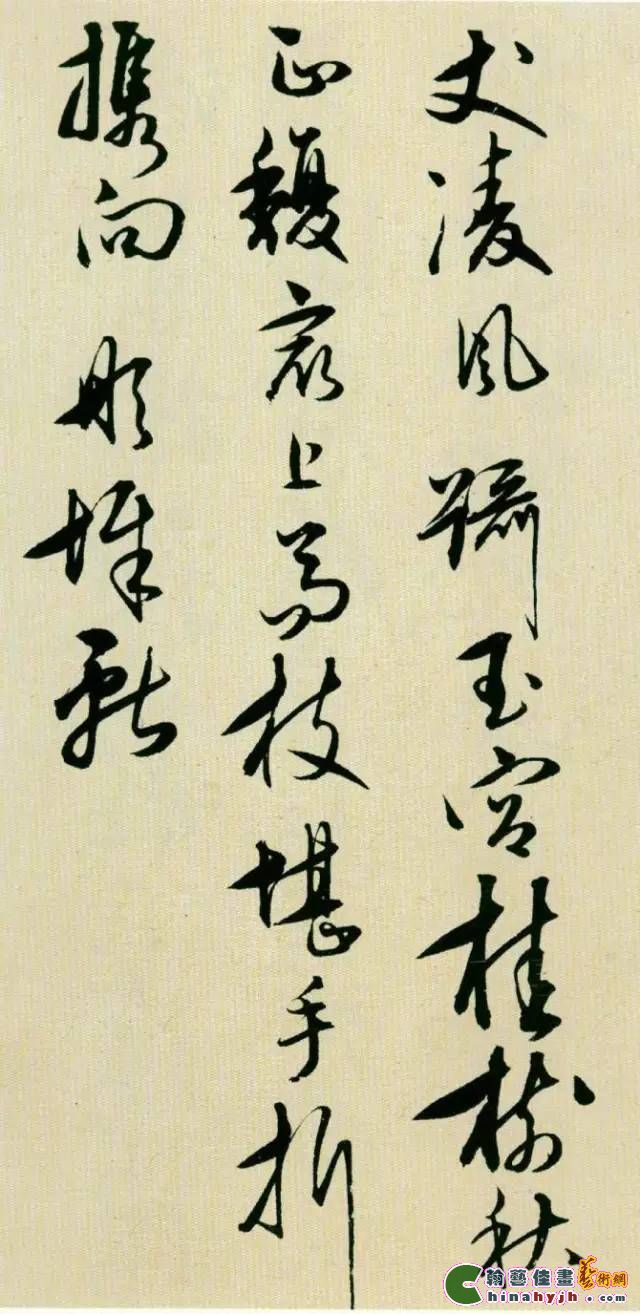 丈凌風躋玉宮桂樹秋
正馥最上高枝堪手折
攜向彤墀獻
翰藝佳畫藝術網
Chinahyjh.com